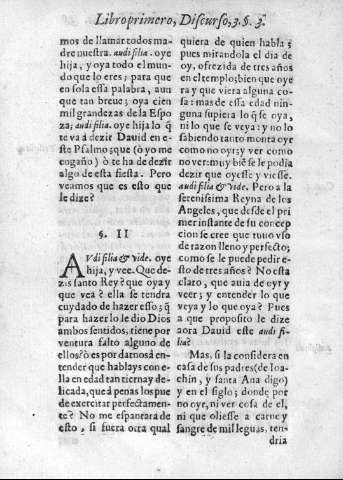 Libro primero, Discurso, 3. §. 3.
mos de llamar todos madre
nuestra. audi filia. oye
hija, y oya todo el mundo
que lo eres; para que
en sola essa palabra, aunque
tan breue; oya cien
mil grandezas de la Espoza;
audi filia. oye hija lo q̃
te va á dezir Dauid en este
Psalmo; que (ò yo me
engaño) ò te ha de dezir
algo de esta fiesta. Pero
veamos que es esto que
le dize?
§. II
AVdi filia & vide. oye
hija, y vee. Que dezis
santo Rey? que oya y
que vea? ella se tendra
cuydado de hazer esso; q̃
para hazerlo le dio Dios
ambos sentidos, tiene por
ventura falto alguno de
ellos? ò es por darnos á entender
que hablays con ella
en edad tan tierna y delicada,
que á penas los puede
exercitar perfectamente?
No me espantara de
esto, si fuera otra qual
quiera de quien habla;
pues mirandola el dia de
oy, ofrezida de tres años
en el templo; bien que oyera
y que viera alguna cosa:
mas de essa edad ninguna
supiera lo q̃ se oya,
ni lo que se veya: y no lo
sabiendo tanto monta oyr
como no oyr; y ver como
no ver: muy biẽ se le podia
dezir que oyesse y viesse.
audi filia & vide. Pero a la
serenissima Reyna de los
Angeles, que desde el primer
instante de su concepcion
se cree que tuuo vso
de razon lleno y perfecto;
como se le puede pedir esto
de tres años? No esta
claro, que auia de oyr y
veer; y entender lo que
veya y lo que oya? Pues
a que proposito le dize
aora Dauid este audi filia?
Mas, si la considera en
casa de sus padres (de Ioachin,
y santa Ana digo)
y en el siglo; donde por
no oyr, ni ver cosa de el,
ni que oliesse a carne y
sangre de mil leguas, tendria